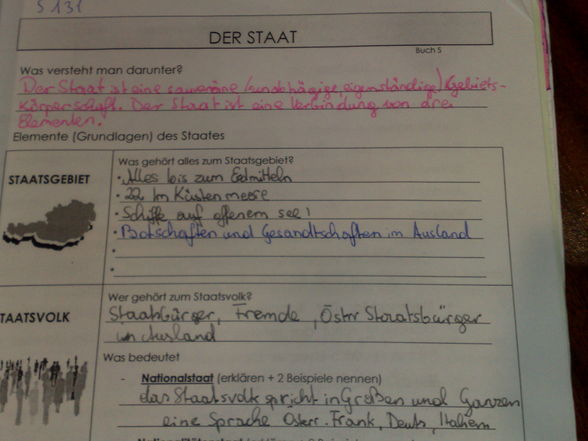 S 131
DER STAAT
Buch S
Was versteht man darunter?
Der Staat ist eine souveräne (unabhängige, eigenständige) Gebiets-
körperschaft. Der Staat ist eine Verbindung von drei
Elementen.
Elemente (Grundlagen) des Staates
STAATSGEBIET
Was gehört alles zum Staatsgebiet?
• Alles bis zum Erdmitteln
• 22 km Küstenmeere
• Schiffe auf offenem see!
• Botschaften und Gesandtschaften im Ausland
•
•
TAATSVOLK
Wer gehört zum Staatsvolk?
Staatbürger, Fremde, Östrr Staatsbürger
im Ausland
Was bedeutet
- Nationalstaat (erklären + 2 Beispiele nennen)
das Staatsvolk spricht in Großen und Ganzen
eine Sprache Österr. Frank, Deuts, Italiem